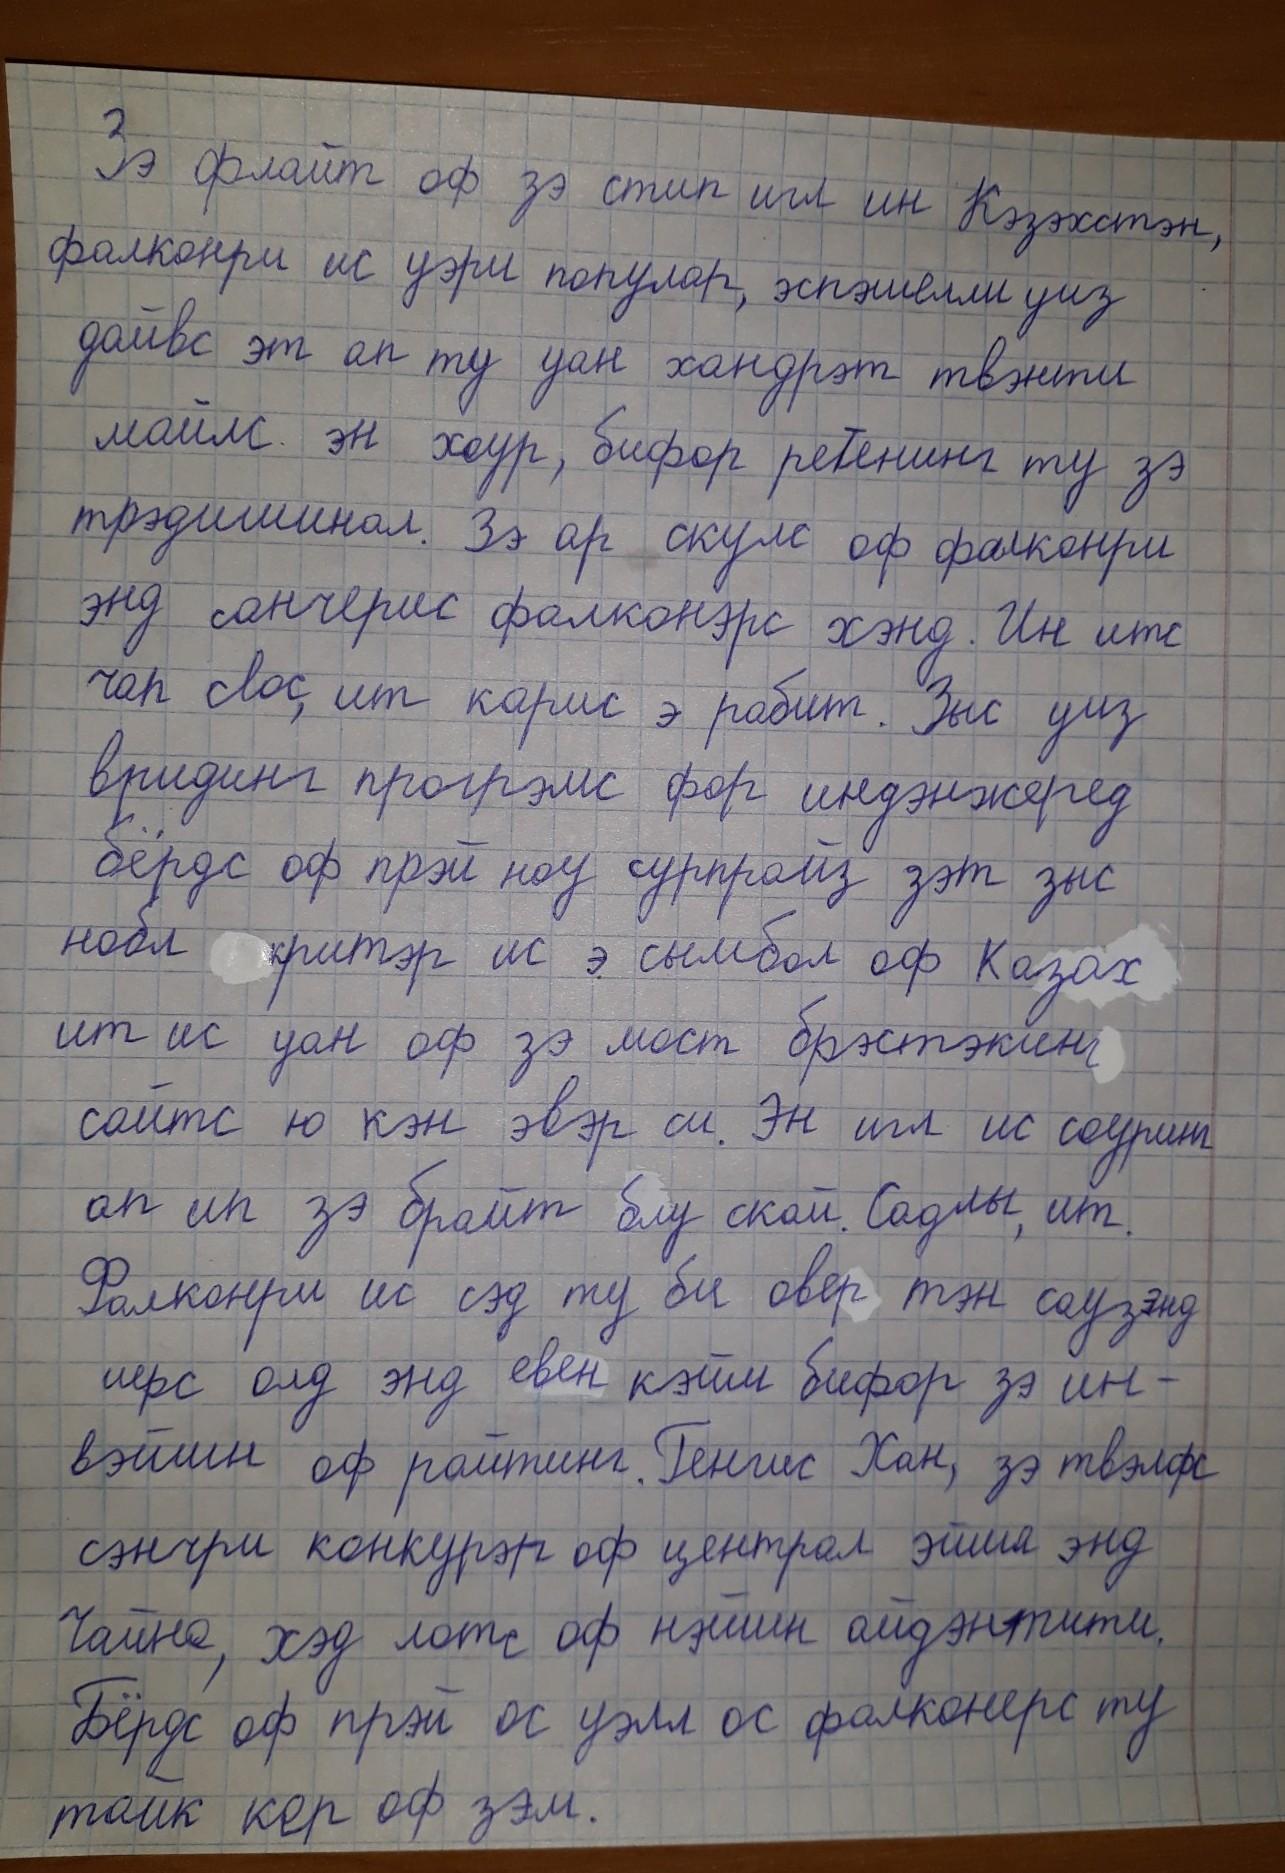 Зэ флайт оф зэ стип игл ин Кэзэхстэн,
фалконри ис уэри популар, эспэшелли уиз
дайвс эт ап ту уан хандрэт твэнти
майлс эн хоур, бифор ретенинг ту зэ
трэдишинал. Зэ ар скулс оф фалконри
энд санчерис фалконэрс хэнд. Ин итс
чап clос, ит карис э рабит. Зыс уиз
вридинг прогрэмс фор индэнжеред
бёрдс оф прэй ноу сурпрайз зэт зыс
нобл критэр ис э сымбол оф Казах
ит ис уан оф зэ мост брэстэкинг
сайтс ю кэн эвэр си. Эн игл ис соуринг
ап ип зэ брайт блу скай. Садлы, ит.
Фалконри ис сэд ту би овер тэн саузэнд
иерс олд энд евен кэйм бифор зэ ин-
вэйшн оф райтинг. Генгис Хан, зэ твэлфс
сэнчри конкурэр оф централ эйша энд
Чайна, хэд лотс оф нэйшн айдэнтити.
Бёрдс оф прэй ос уэлл ос фалконерс ту
тайк кер оф зэм.